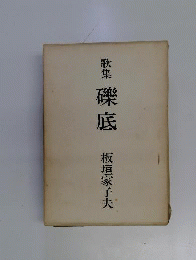 歌集
礫底
板垣家子夫